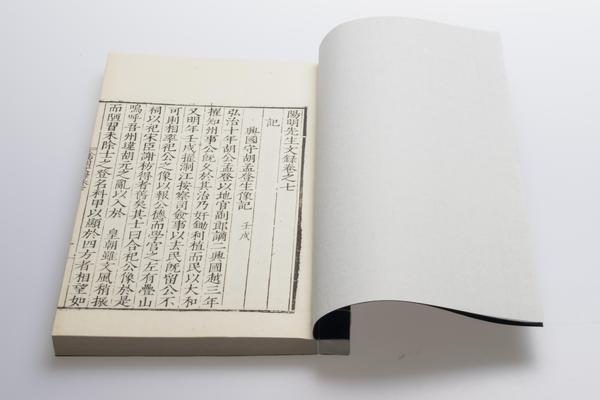 陽明先生文録卷之七
記
興國守胡孟登生像記 壬戌
弘治十年胡公孟登以地官副郎謫二興國越三年
擢知州事公旣久於其治乃奸鋤利植而民以大和
又明年壬戌擢浙江按察司僉事以去民旣留公不
可則相率祀公之像以報公德而學宫之左有疊山
祠以祀宋臣謝枋得者舊矣其士曰合祀公像於是
嗚呼吾州違胡元之亂以入於 皇朝雖文風稍振
而陋習未除士之登名科甲以顯於四方者相望如